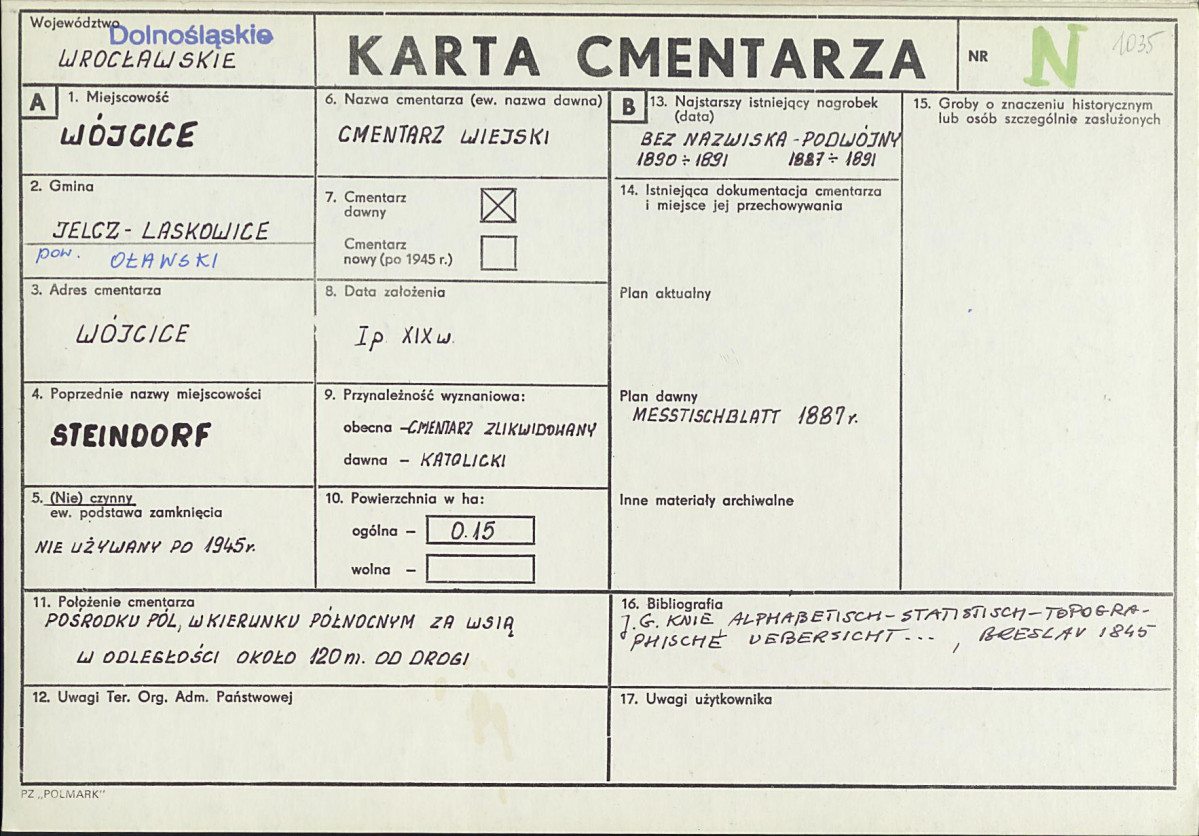 Województwo
Dolnośląskie
WROCŁAWSKIE
KARTA CMENTARZA
NR
N
1035
A
1. Miejscowość
WÓJCICE
2. Gmina
JELCZ - LASKOWICE
pow. OŁAWSKI
3. Adres cmentarza
WÓJCICE
4. Poprzednie nazwy miejscowości
STEINDORF
5. (Nie) czynny
ew. podstawa zamknięcia
NIE UŻYWANY PO 1945r.
6. Nazwa cmentarza (ew. nazwa dawna)
CMENTARZ WIEJSKI
7. Cmentarz
dawny
Cmentarz
nowy (po 1945 r.)
8. Data założenia
I p XIX w.
9. Przynależność wyznaniowa:
obecna – CMENTARZ ZLIKWIDOWANY
dawna – KATOLICKI
10. Powierzchnia w ha:
ogólna – 0.15
wolna –
B
13. Najstarszy istniejący nagrobek
(data)
BEZ NAZWISKA - PODWÓJNY
1890 ÷ 1891 1887 ÷ 1891
14. Istniejąca dokumentacja cmentarza
i miejsce jej przechowywania
Plan aktualny
Plan dawny
MESSTISCHBLATT 1887 r.
Inne materiały archiwalne
15. Groby o znaczeniu historycznym
lub osób szczególnie zasłużonych
11. Położenie cmentarza
POŚRODKU PÓL, W KIERUNKU PÓŁNOCNYM ZA WSIĄ
W ODLEGŁOŚCI OKOŁO 120 m. OD DROGI
16. Bibliografia
J.G. KNIE ALPHABETISCH – STATISTISCH – TOPOGRA-
PHISCHE UEBERSICHT ... , BRESLAU 1845
12. Uwagi Ter. Org. Adm. Państwowej
17. Uwagi użytkownika
PZ „POLMARK"